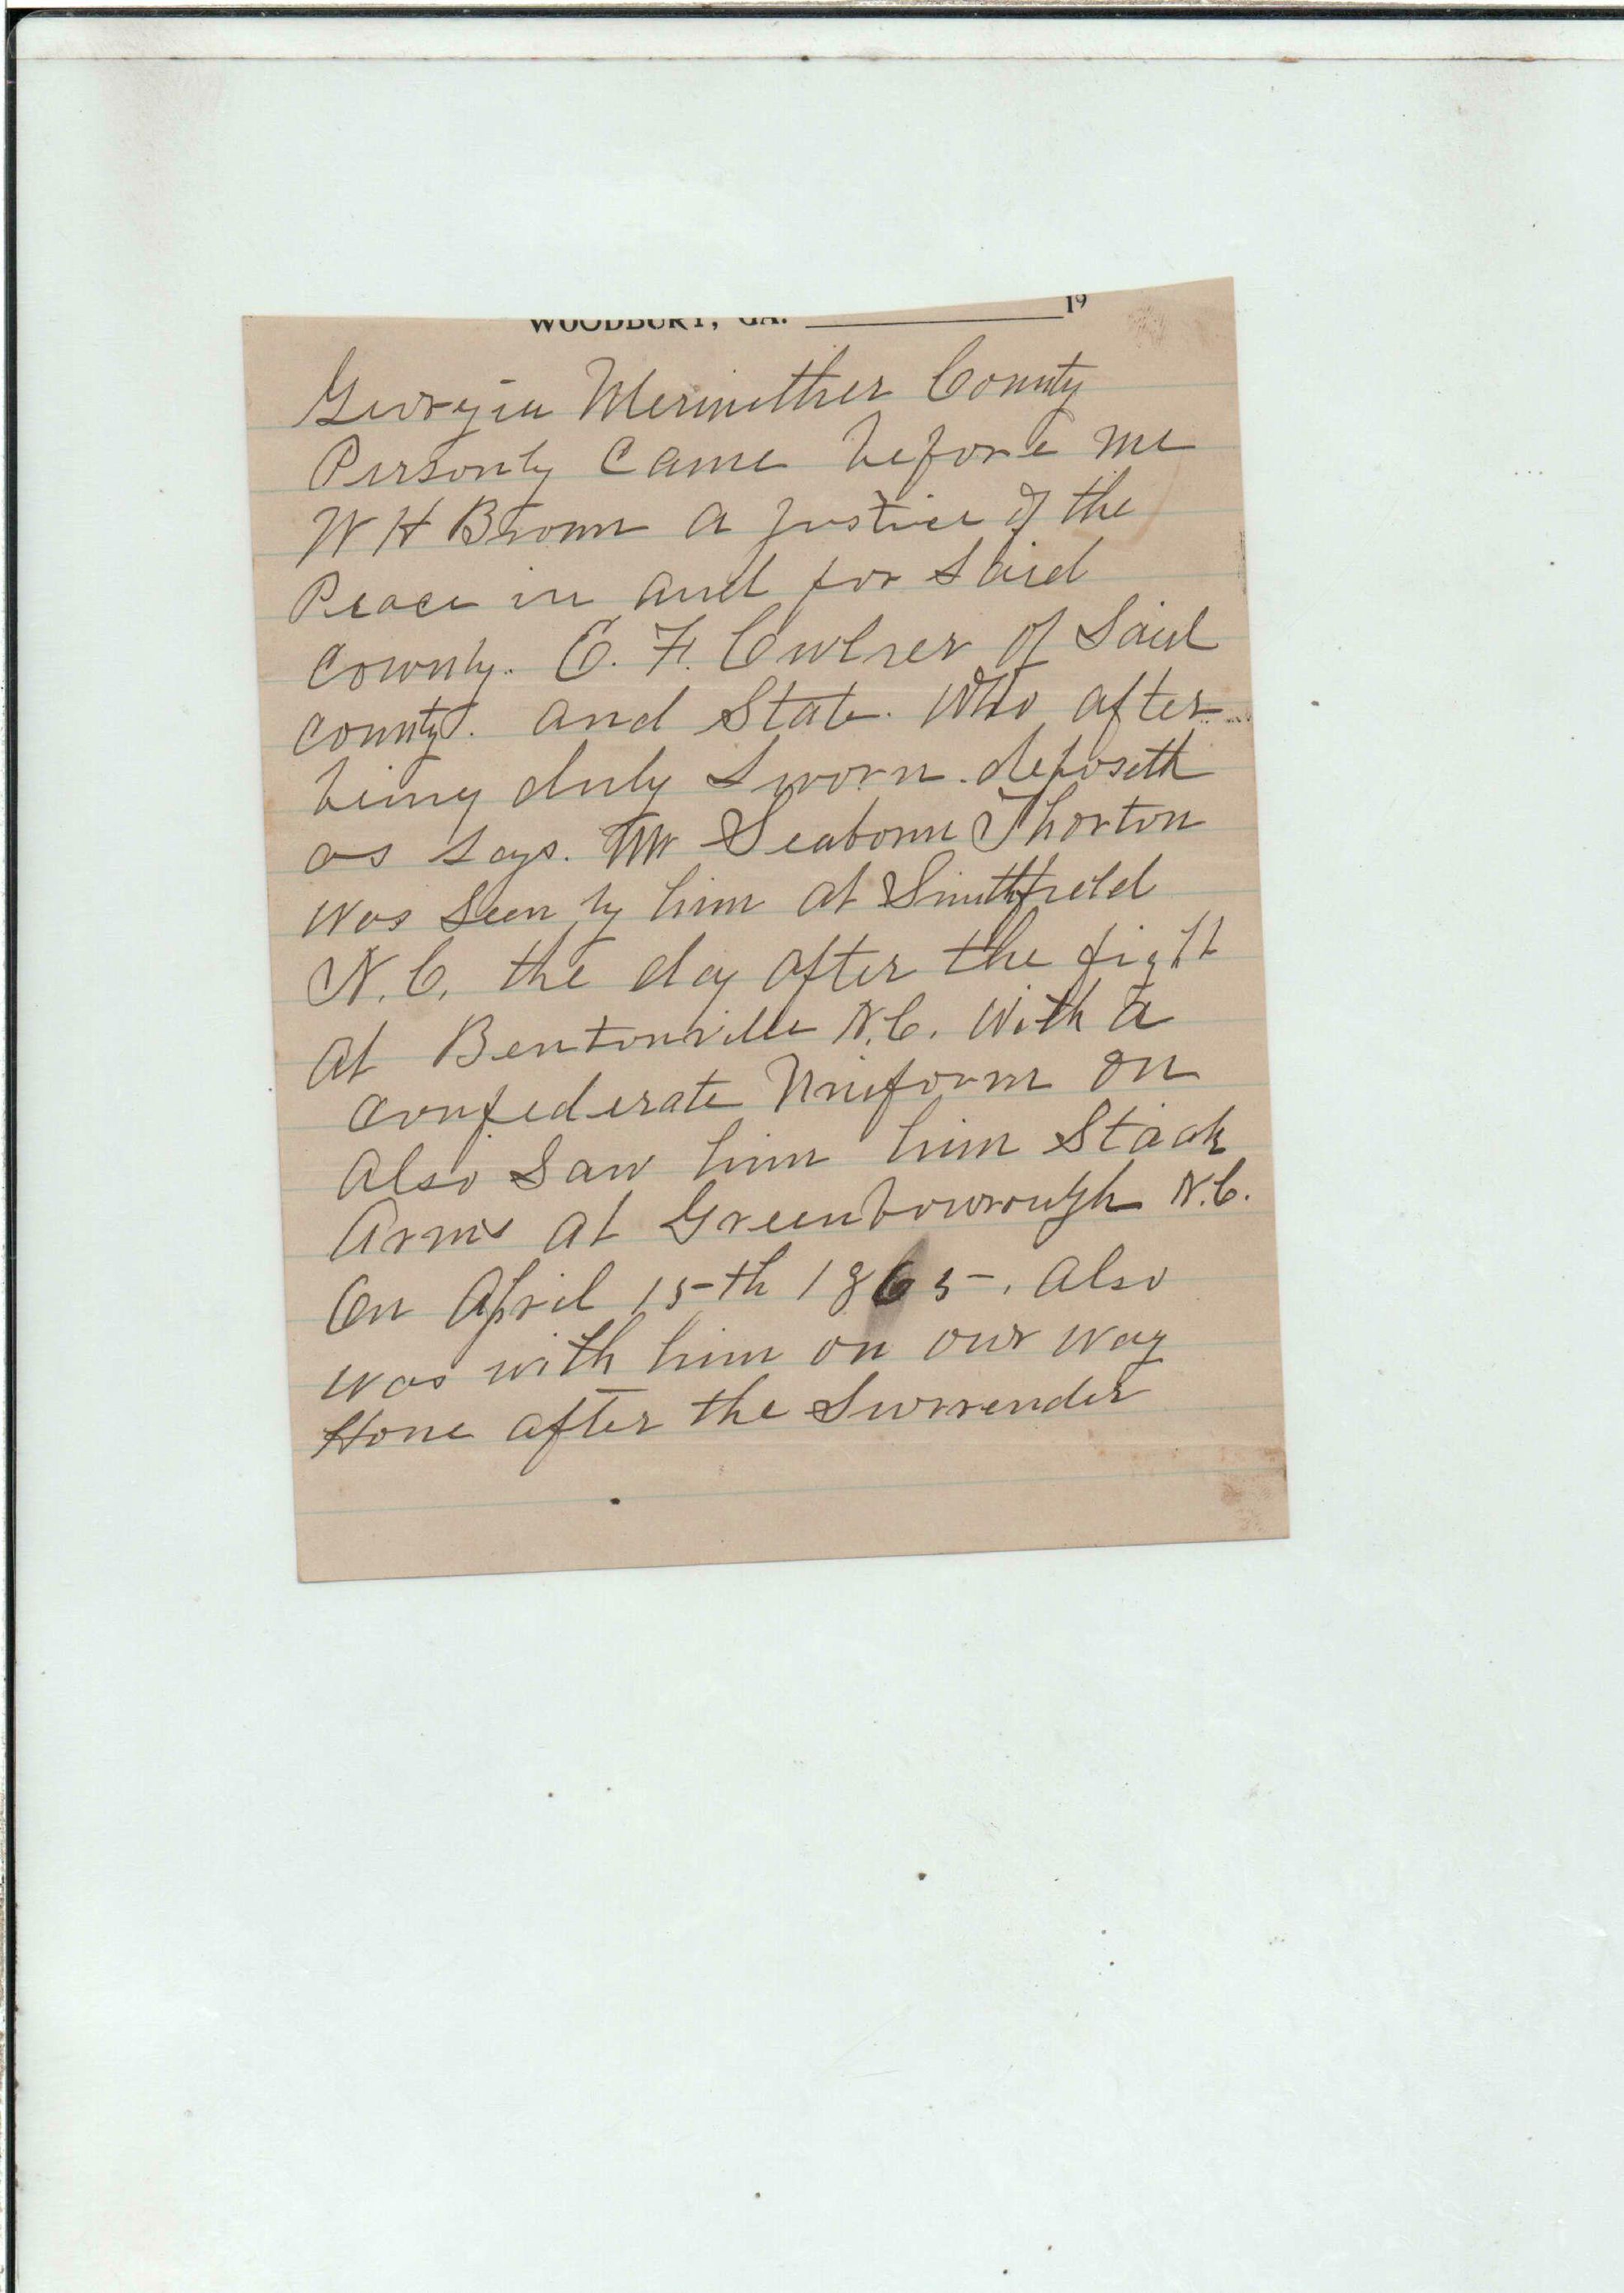 WOODBURY, GA. 19
Georgia Meriwether County
Personly came before me
W H Brown a Justice of the
Peace in and for Said
County. E. F. Culver of Said
county. and State. Who after
being duly Sworn. deposeth
as says. Mr Seaborn Thorton
was Seen by him at Smithfield
N.C. the day after the fight
at Bentonville N.C. With a
confederate Uniform on
also Saw him him Stack
Arms at Greenbowrough N.C.
On April 15th 1865. Also
was with him on our way
Home after the Surrender